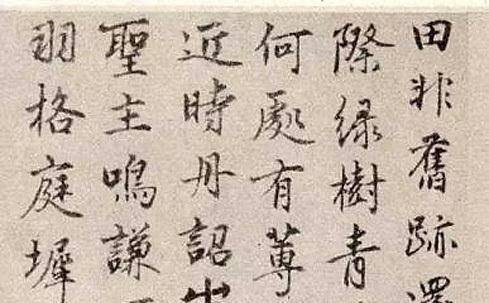 田非舊跡還
際綠樹青
何處有蓴
近時丹詔出
聖主鳴謙
羽格庭墀